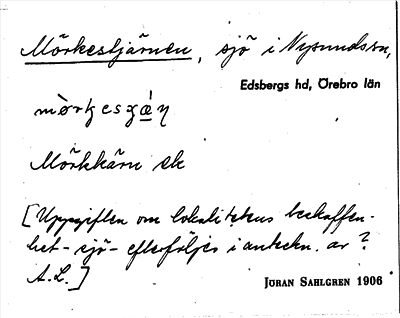 Mörkestjärnen, sjö i Nysundssn,
Edsbergs hd, Örebro län
mòrkesʒæ̀η
Mörkkärn ek
[Uppgiften om lokalitetens beskaffen-
het - sjö - efterföljes i anteckn. av ?
A.L.]
JÖRAN SAHLGREN 1906